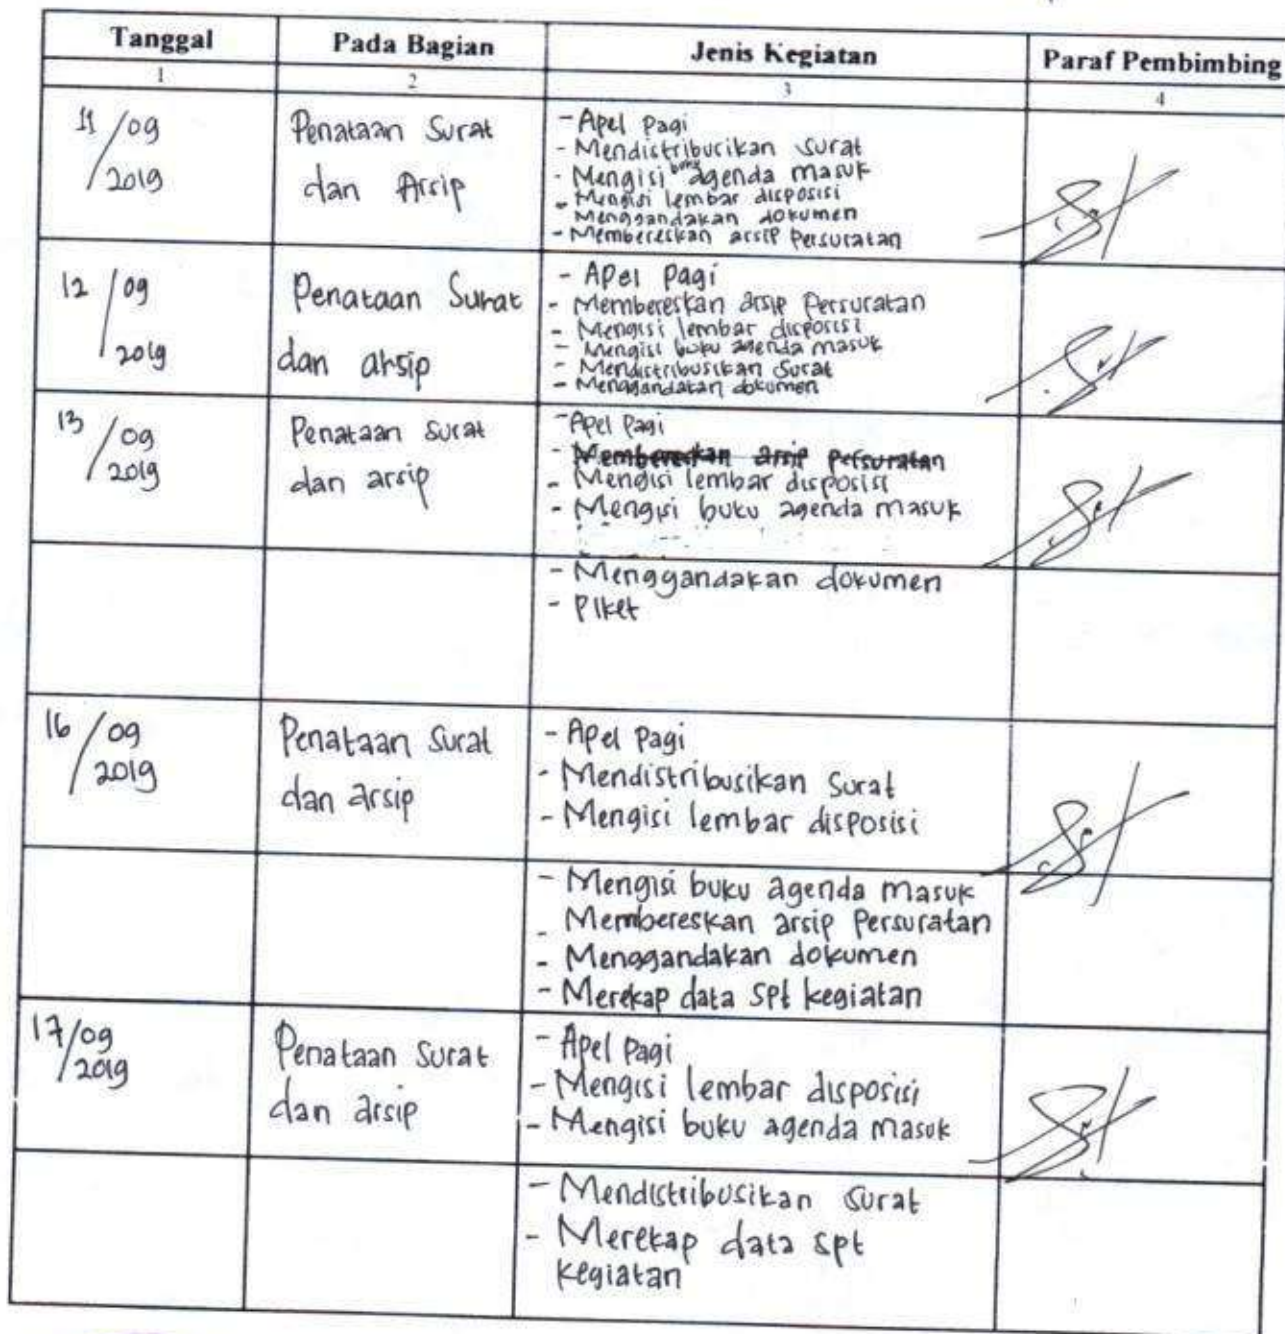 Tanggal Pada Bagian Jenis Kegiatan Paraf Pembimbing
1 2 3 4
11/09/2019
Penataan Surat
dan Arsip
- Apel Pagi
- Mendistribusikan surat
- Mengisi buku agenda masuk
- Mengisi lembar disposisi
- Menggandakan dokumen
- Membereskan arsip Persuratan
12/09/2019
Penataan Surat
dan arsip
- Apel Pagi
- Membereskan arsip Persuratan
- Mengisi lembar disposisi
- Mengisi buku agenda masuk
- Mendistribusikan Surat
- Menggandakan dokumen
13/09/2019
Penataan surat
dan arsip
- Apel Pagi
- Membereskan arsip persuratan
- Mengisi lembar disposisi
- Mengisi buku agenda masuk
- Menggandakan dokumen
- Piket
16/09/2019
Penataan Surat
dan arsip
- Apel Pagi
- Mendistribusikan Surat
- Mengisi lembar disposisi
- Mengisi buku agenda masuk
- Membereskan arsip Persuratan
- Menggandakan dokumen
- Merekap data spt kegiatan
17/09/2019
Penataan Surat
dan arsip
- Apel Pagi
- Mengisi lembar disposisi
- Mengisi buku agenda masuk
- Mendistribusikan Surat
- Merekap data spt
kegiatan